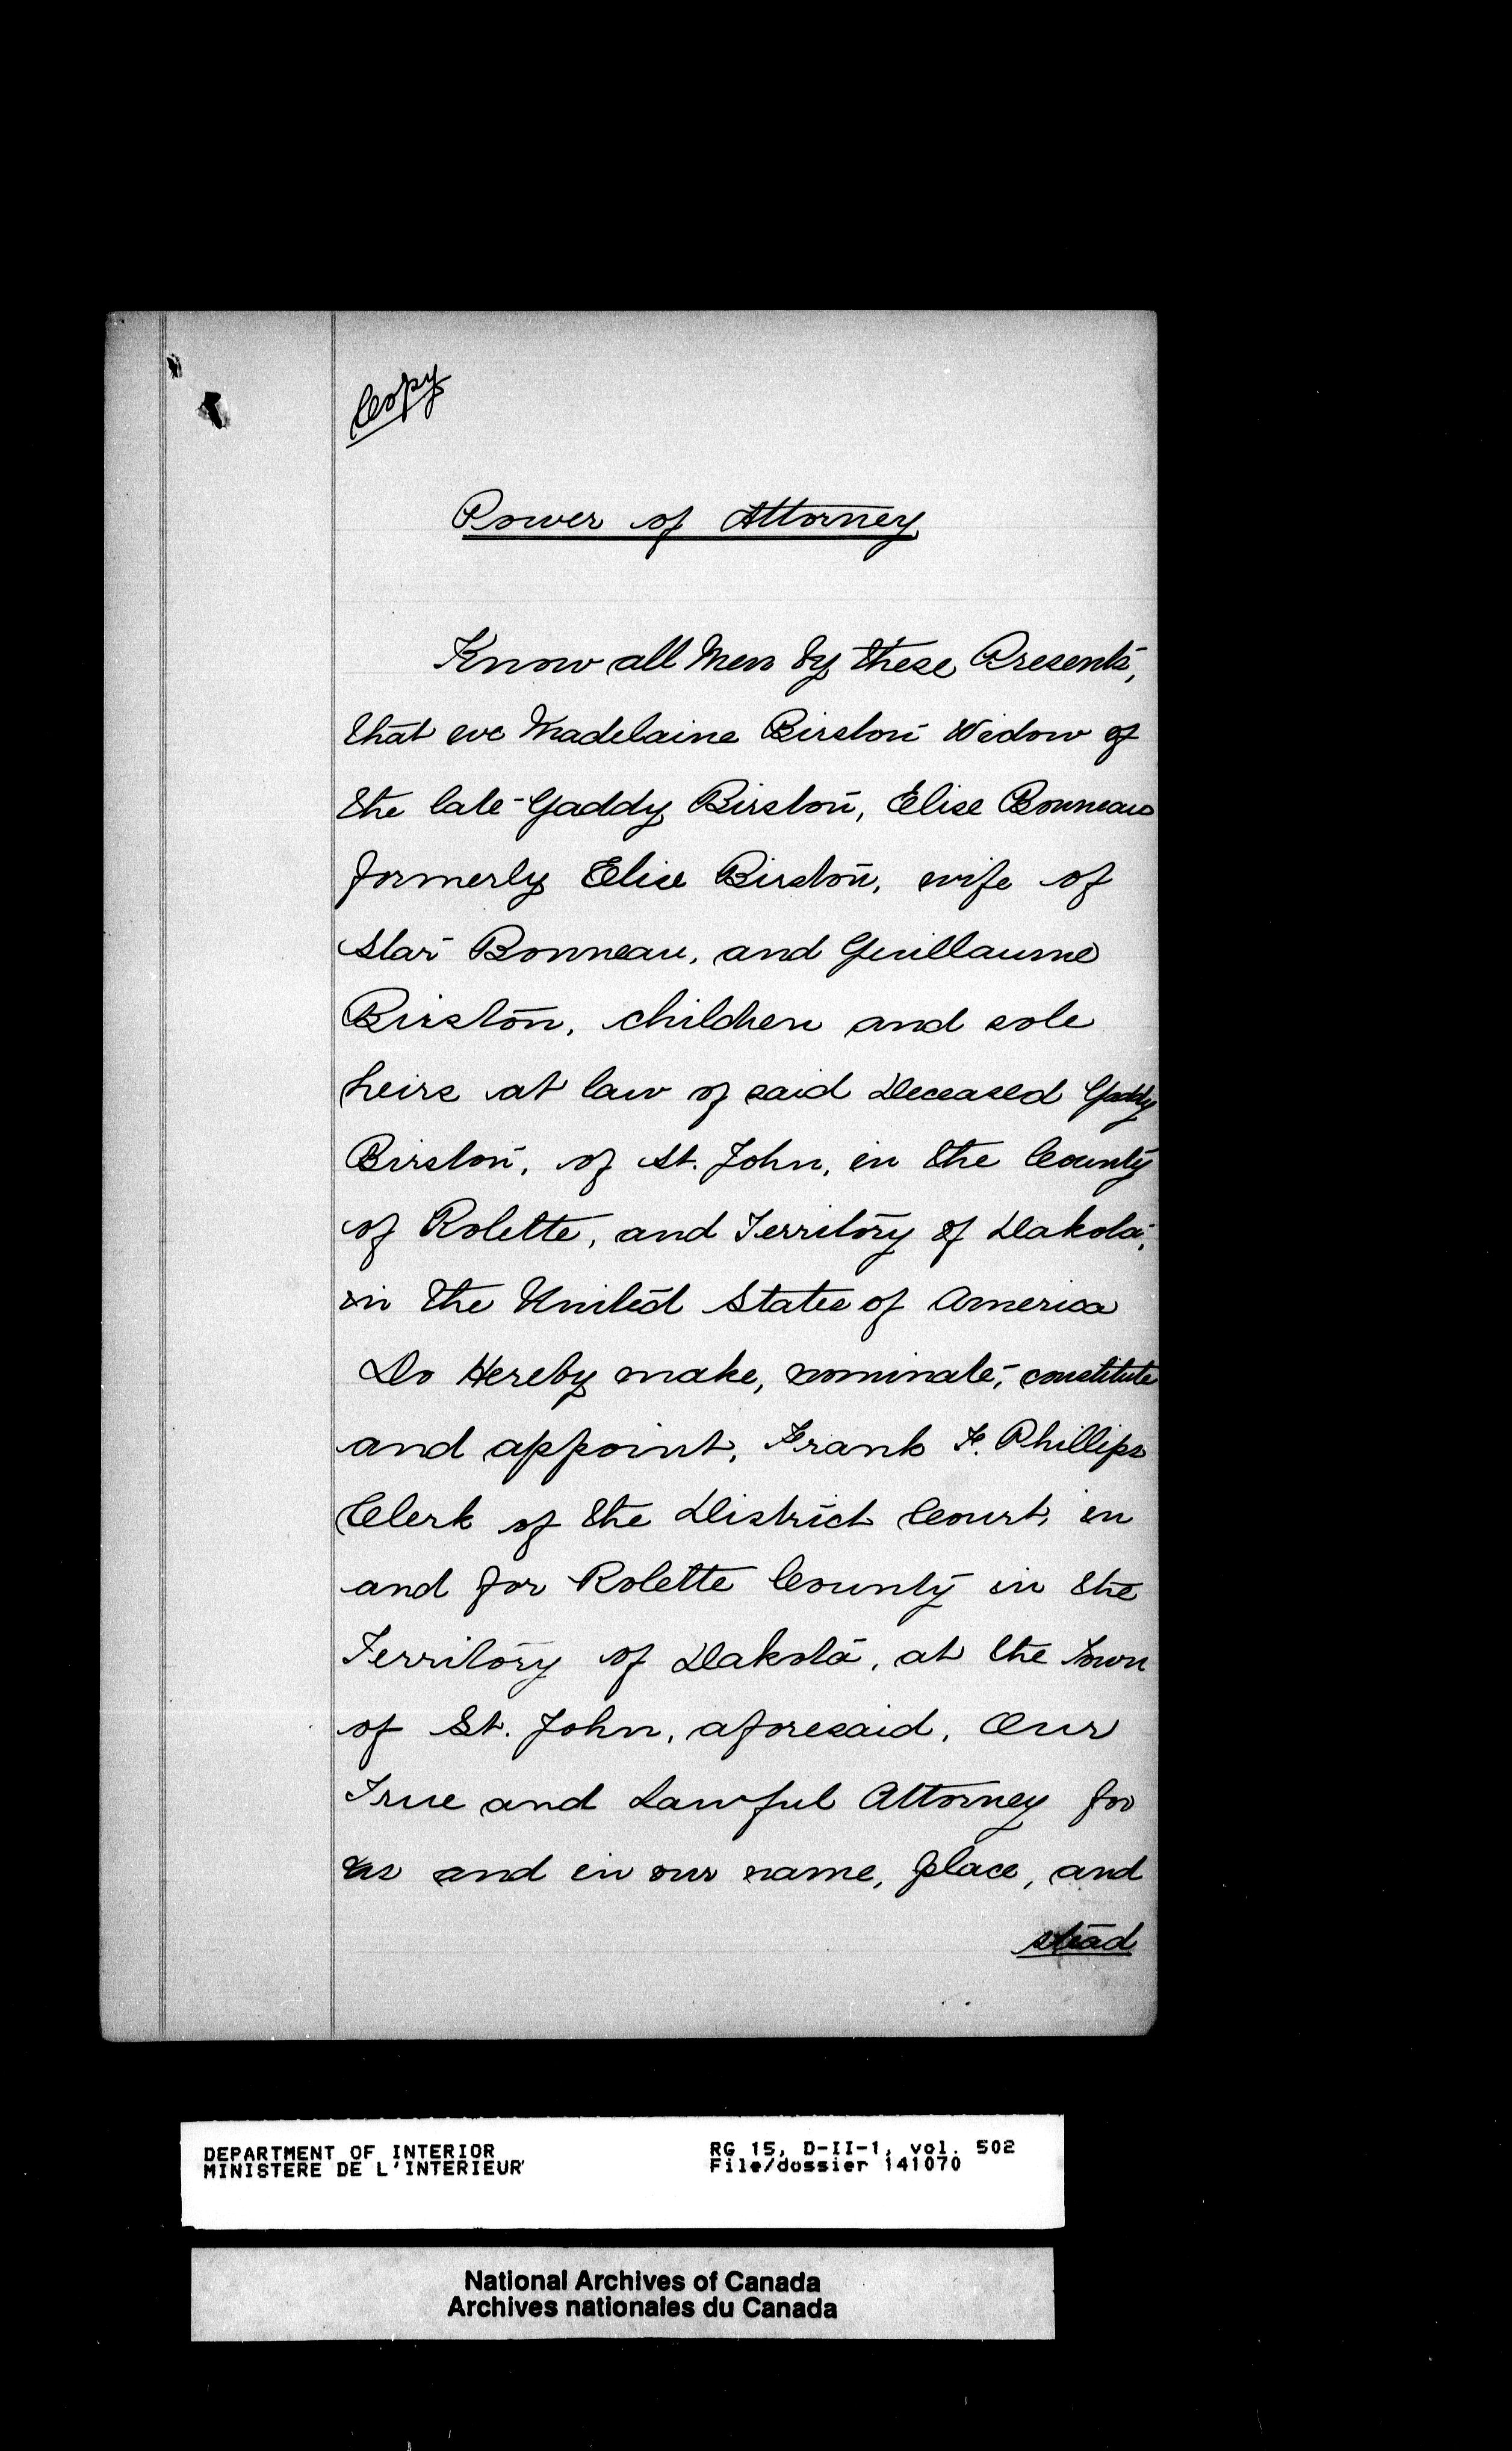 Copy
Power of Attorney
Know all Men by these Presents,
that we Madelaine Birston Widow of
the late Gaddy Birston, Elise Bonneau
formerly Elise Birston, wife of
Star Bonneau, and Guillaume
Birston, children and sole
heirs at law of said Deceased Gaddy
Birston, of St. John, in the County
of Rolette, and Territory of Dakota,
in the United States of America
Do Hereby make, nominate, constitute
and appoint, Frank F. Phillips
Clerk of the District Court, in
and for Rolette County in the
Territory of Dakota, at the town
of St. John, aforesaid, Our
True and Lawful Attorney for
us and in our name, place, and
stead
DEPARTMENT OF INTERIOR RG 15, D-II-1, vol. 502
MINISTERE DE L'INTERIEUR File/dossier 141070
National Archives of Canada
Archives nationales du Canada